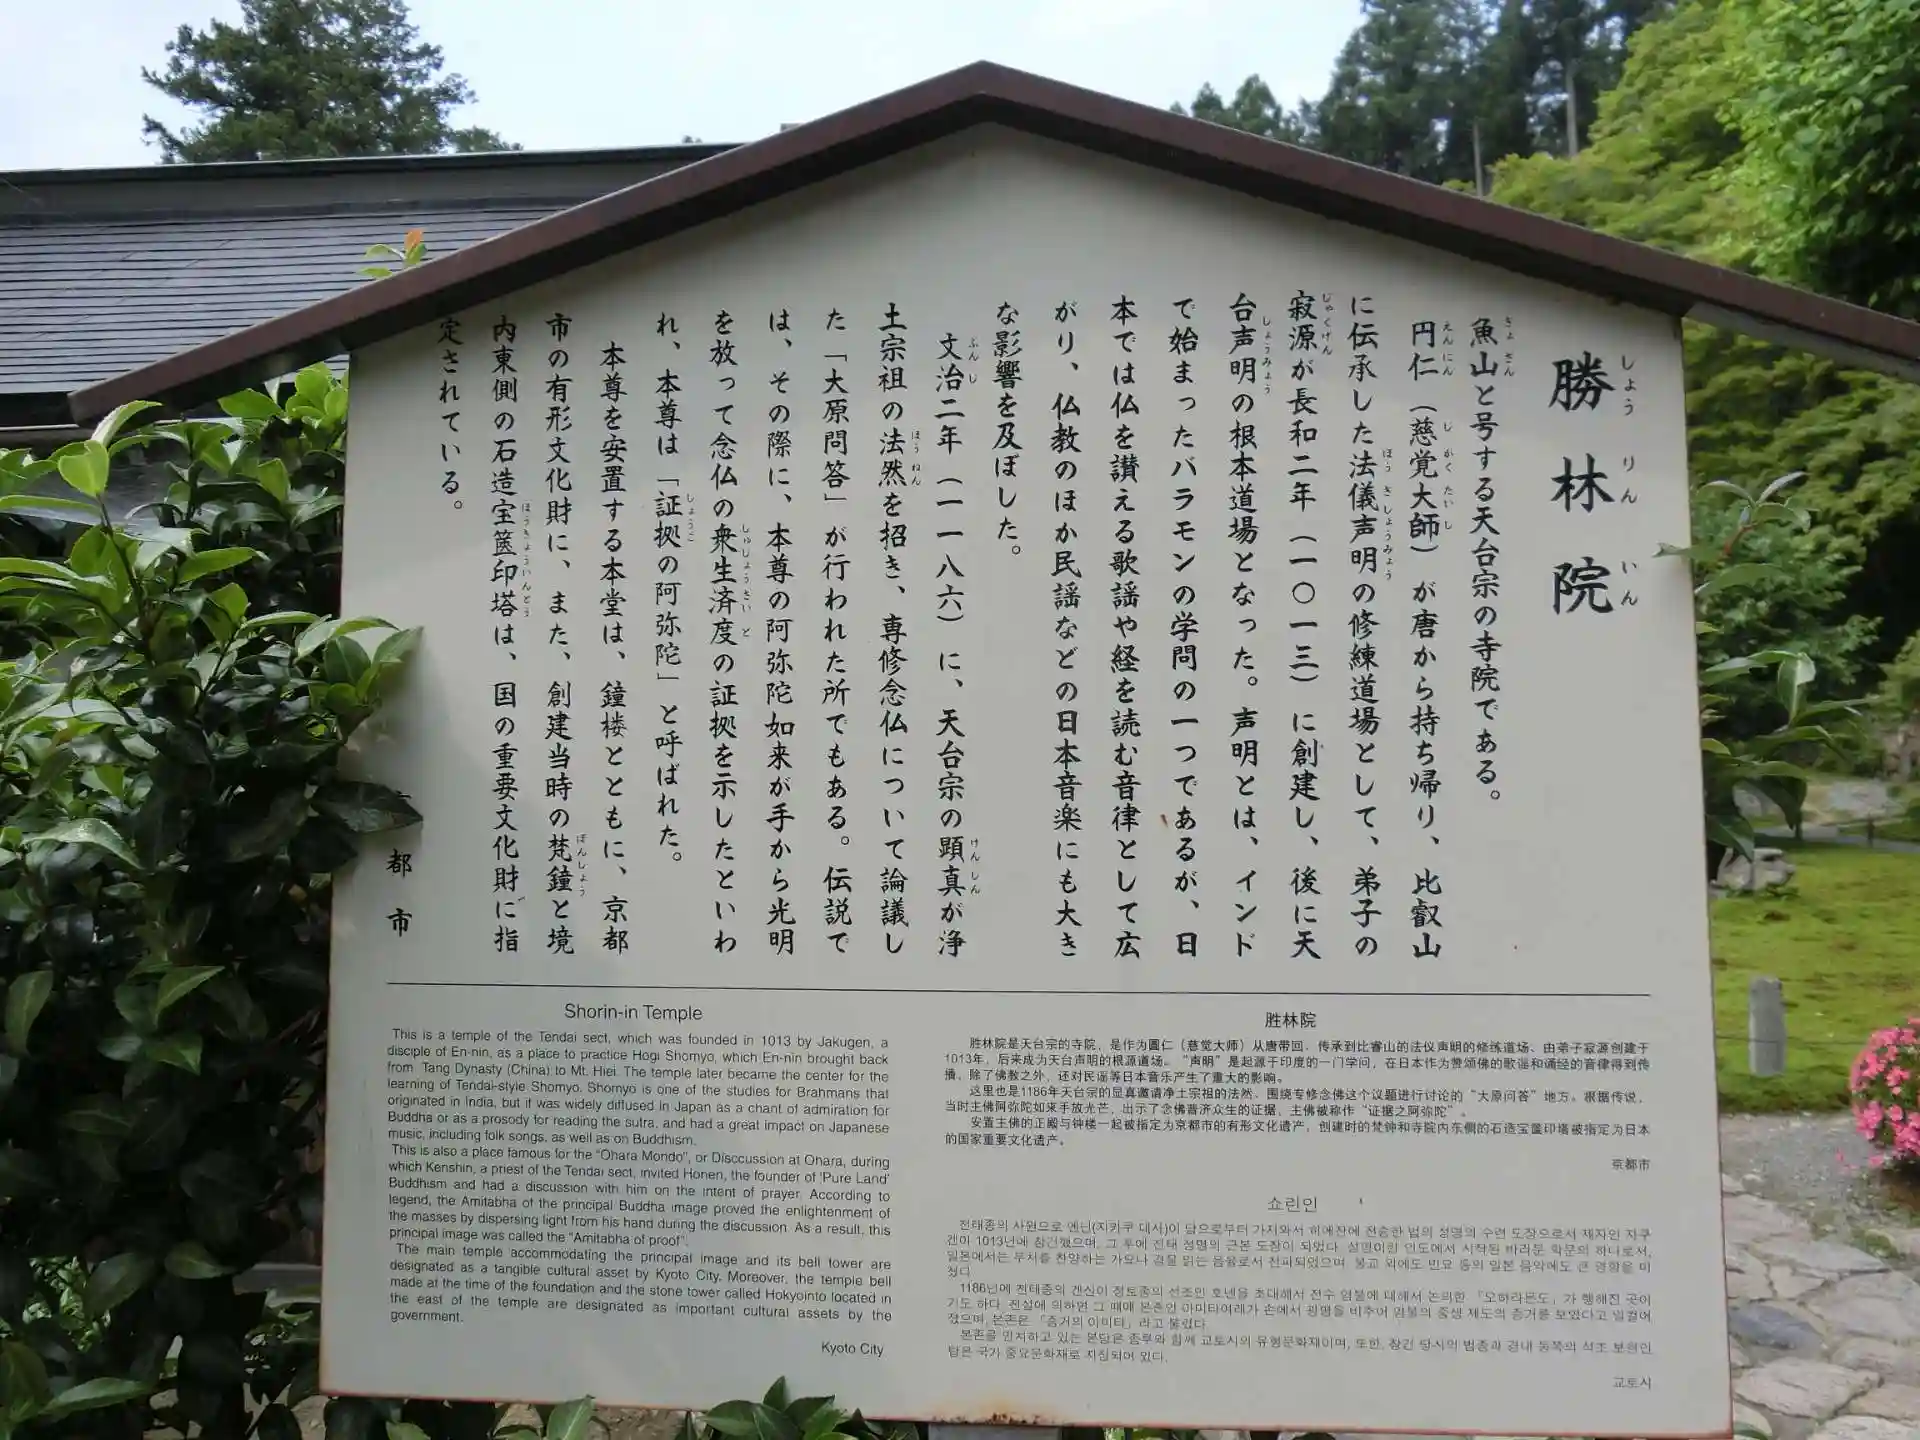 勝林院
魚山と号する天台宗の寺院である。
円仁（慈覚大師）が唐から持ち帰り、比叡山
に伝承した法儀声明の修練道場として、弟子の
寂源が長和二年（一〇一三）に創建し、後に天
台声明の根本道場となった。声明とは、インド
で始まったバラモンの学問の一つであるが、日
本では仏を讃える歌謡や経を読む音律として広
がり、仏教のほか民謡などの日本音楽にも大き
な影響を及ぼした。
文治二年（一一八六）に、天台宗の顕真が浄
土宗祖の法然を招き、専修念仏について論議し
た「大原問答」が行われた所でもある。伝説で
は、その際に、本尊の阿弥陀如来が手から光明
を放って念仏の衆生済度の証拠を示したといわ
れ、本尊は「証拠の阿弥陀」と呼ばれた。
本尊を安置する本堂は、鐘楼とともに、京都
市の有形文化財に、また、創建当時の梵鐘と境
内東側の石造宝篋印塔は、国の重要文化財に指
定されている。
都市
Shorin-in Temple
This is a temple of the Tendai sect, which was founded in 1013 by Jakugen, a
disciple of En-nin, as a place to practice Hogi Shomyo, which En-nin brought back
from Tang Dynasty (China) to Mt. Hiei. The temple later became the center for the
learning of Tendai-style Shomyo. Shomyo is one of the studies for Brahmans that
originated in India, but it was widely diffused in Japan as a chant of admiration for
Buddha or as a prosody for reading the sutra, and had a great impact on Japanese
music, including folk songs, as well as on Buddhism.
This is also a place famous for the "Ohara Mondo", or Disccussion at Ohara, during
which Kenshin, a priest of the Tendai sect, invited Honen, the founder of 'Pure Land'
Buddhism and had a discussion with him on the intent of prayer. According to
legend, the Amitabha of the principal Buddha image proved the enlightenment of
the masses by dispersing light from his hand during the discussion. As a result, this
principal image was called the "Amitabha of proof".
The main temple accommodating the principal image and its bell tower are
designated as a tangible cultural asset by Kyoto City. Moreover, the temple bell
made at the time of the foundation and the stone tower called Hokyointo located in
the east of the temple are designated as important cultural assets by the
government.
Kyoto City
胜林院
胜林院是天台宗的寺院，是作为圆仁（慈觉大师）从唐带回、传承到比睿山的法仪声明的修练道场、由弟子寂源创建于
1013年，后来成为天台声明的根源道场。“声明”是起源于印度的一门学问，在日本作为赞颂佛的歌谣和诵经的音律得到传
播、除了佛教之外，还对民谣等日本音乐产生了重大的影响。
这里也是1186年天台宗的显真邀请净土宗祖的法然、围绕专修念佛这个议题进行讨论的“大原问答”地方。根据传说，
当时主佛阿弥陀如来手放光芒，出示了念佛普济众生的证据，主佛被称作“证据之阿弥陀”。
安置主佛的正殿与钟楼一起被指定为京都市的有形文化遗产，创建时的梵钟和寺院内东侧的石造宝箧印塔被指定为日本
的国家重要文化遗产。
京都市
쇼린인
천태종의 사원으로 엔닌(지카쿠 대사)이 당으로부터 가지와서 히에잔에 전승한 법의 성명의 수련 도장으로서 제자인 자쿠
겐이 1013년에 창건했으며, 그 후에 천태 성명의 근본 도장이 되었다. 성명이란 인도에서 시작된 바라문 학문의 하나로서,
일본에서는 부처를 찬양하는 가요나 경을 읽는 음율로서 전파되었으며 불교 외에도 민요 등의 일본 음악에도 큰 영향을 미
쳤다.
1186년에 천태종의 겐신이 정토종의 선조인 호넨을 초대해서 전수 염불에 대해서 논의한 「오하라몬도」가 행해진 곳이
기도 하다. 전설에 의하면 그 때에 본존인 아미타여래가 손에서 광명을 비추어 염불의 중생 제도의 증거를 보였다고 일컬어
졌으며, 본존은 「증거의 아미타」라고 불렸다.
본존을 안치하고 있는 본당은 종루와 함께 교토시의 유형문화재이며, 또한, 창건 당시의 범종과 경내 동쪽의 석조 보협인
탑은 국가 중요문화재로 지정되어 있다.
교토시